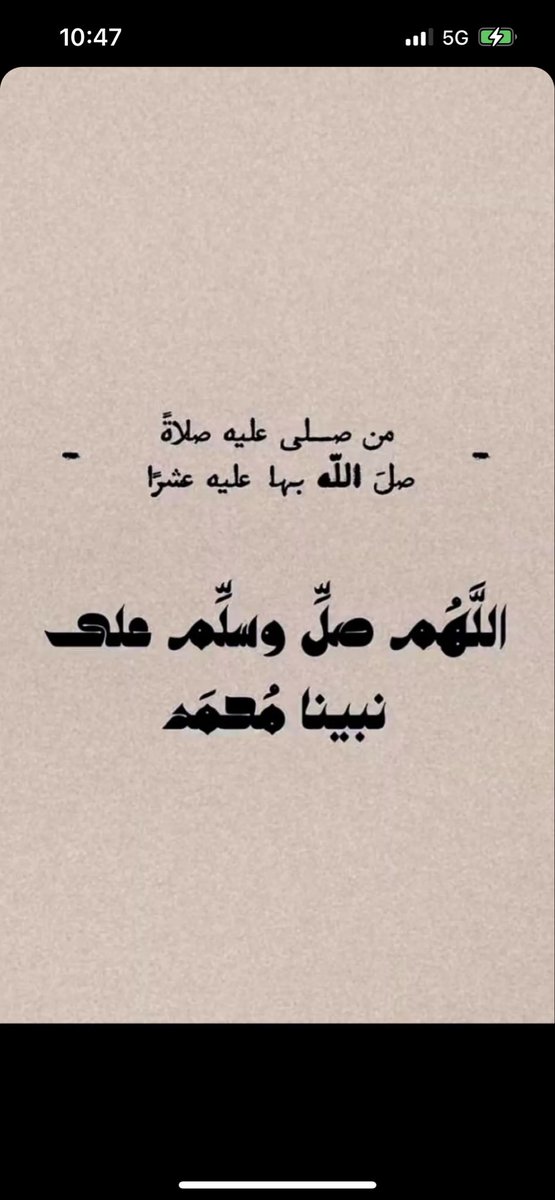 10:47 5G
من صلى عليه صلاةً
صلَ اللّه بها عليه عشرًا
اللَّهُم صلِّ وسلِّم على
نبينا مُحمَد